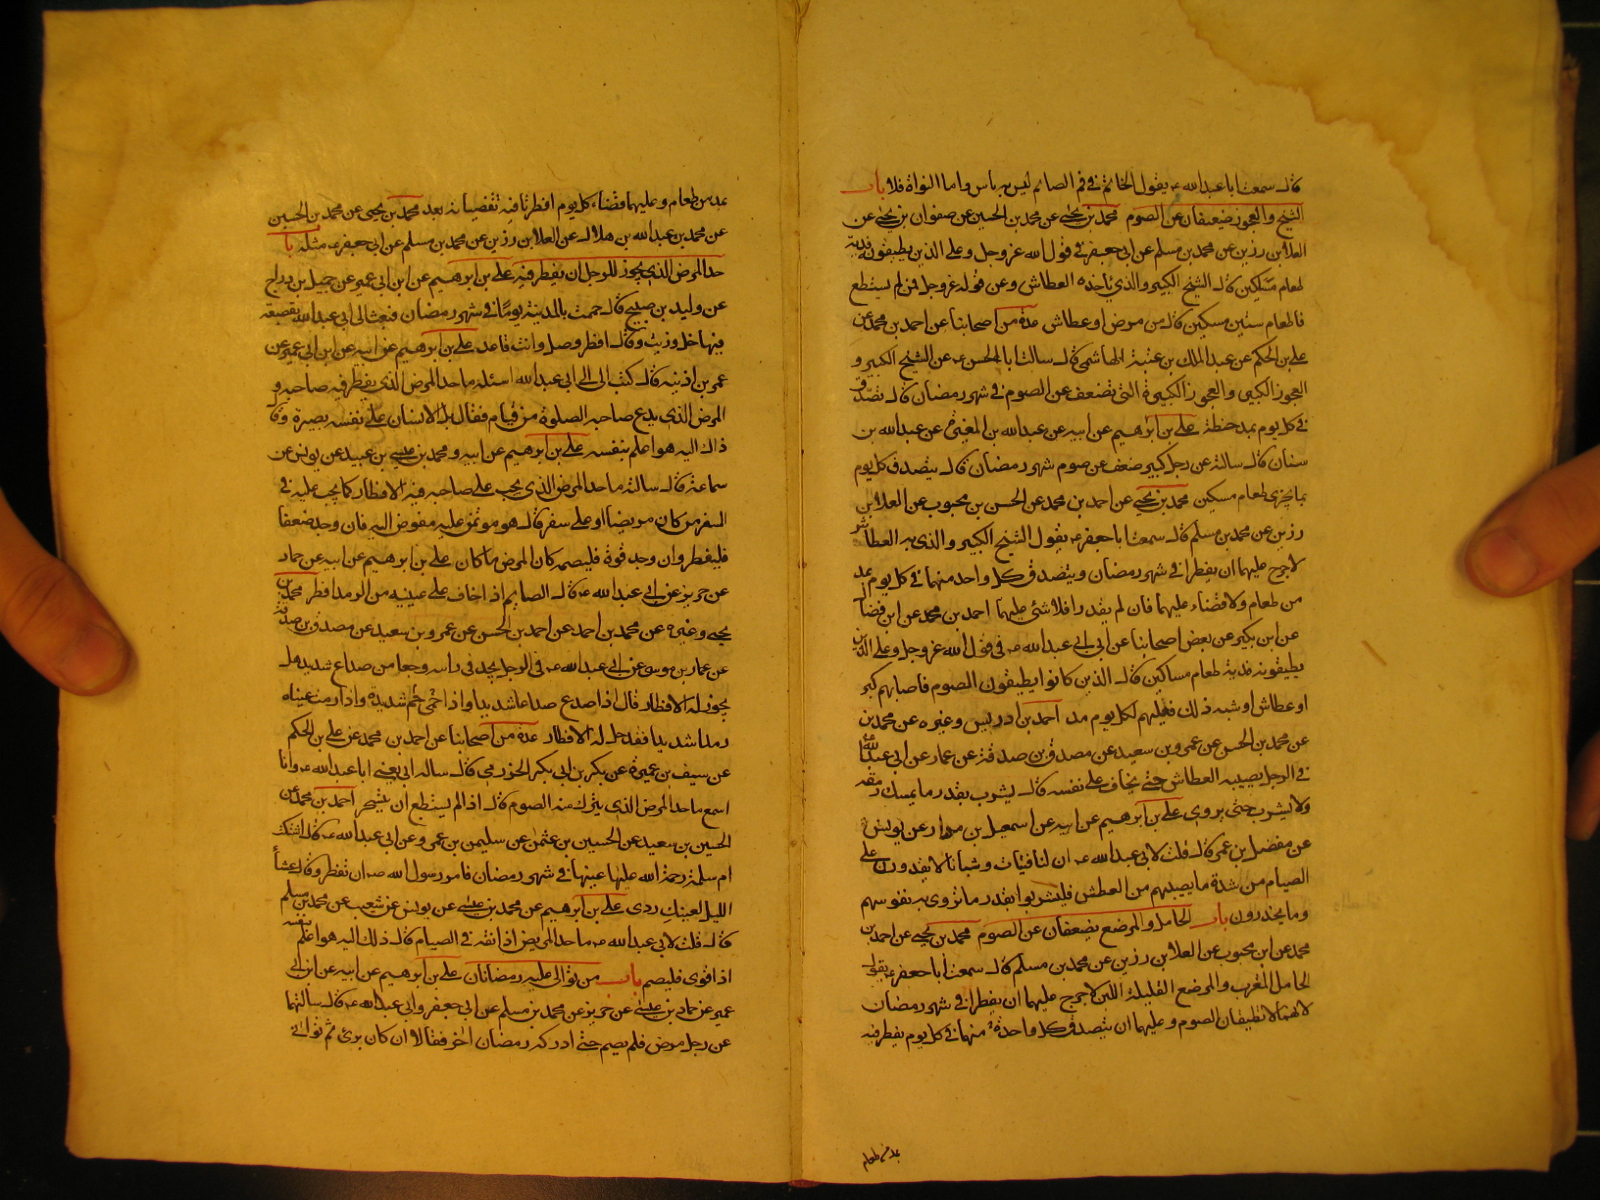 قال سمعت ابا عبدالله ع يقول الخاتم في فم الصائم ليس به باس واما النواة فلا باب
الشيخ والعجوز يضعفان عن الصوم محمد بن يحيى عن محمد بن الحسين عن صفوان بن يحيى عن
العلا بن رزين عن محمد بن مسلم عن ابي جعفر في قول الله عز وجل وعلى الذين يطيقونه فدية
طعام مسكين قال الشيخ الكبير والذي ياخذه العطاش وعن قوله عز وجل فمن لم يستطع
فاطعام ستين مسكين قال من مرض او عطاش عدة من اصحابنا عن احمد بن محمد عن
علي بن الحكم عن عبد الملك بن عتبة الهاشمي قال سالت ابا الحسن ع عن الشيخ الكبير و
العجوز الكبير والعجوز الكبيرة التي تضعف عن الصوم في شهر رمضان قال تصدق
في كل يوم بمد حنطة علي بن ابرهيم عن ابيه عن عبدالله بن المغيرة عن عبدالله بن
سنان قال سالته عن رجل كبير ضعف عن صوم شهر رمضان قال يتصدق كل يوم
بما يجزي طعام مسكين محمد بن يحيى عن احمد بن محمد عن الحسن بن محبوب عن العلا بن
رزين عن محمد بن مسلم قال سمعت ابا جعفر ع يقول الشيخ الكبير والذي به العطاش
لا حرج عليهما ان يفطرا في شهر رمضان ويتصدق كل واحد منهما في كل يوم بمد
من طعام ولا قضاء عليهما فان لم يقدرا فلا شئ عليهما احمد بن محمد عن ابن فضال
عن ابن بكير عن بعض اصحابنا عن ابي عبدالله ع في قول الله عز وجل وعلى الذين
يطيقونه فدية طعام مساكين قال الذين كانوا يطيقون الصوم فاصابهم كبر
او عطاش او شبه ذلك فعليهم لكل يوم مد احمد بن ادريس وغيره عن محمد بن
عن محمد بن الحسن عن عمرو بن سعيد عن مصدق بن صدقة عن عمار عن ابي عبدالله ع
في الرجل يصيبه العطاش حتى يخاف على نفسه قال يشرب بقدر ما يمسك رمقه
ولا يشرب حتى يروى علي بن ابرهيم عن ابيه عن اسمعيل بن مرار عن يونس
عن مفضل بن عمر قال قلت لابي عبدالله ع ان لنا فتيات وشبانا لا يقدرون على
الصيام من شدة ما يصيبهم من العطش فليشربوا بقدر ما تروى به نفوسهم
وما يحذرون باب الحامل والمرضع يضعفان عن الصوم محمد بن يحيى عن احمد بن
محمد عن ابن محبوب عن العلا بن رزين عن محمد بن مسلم قال سمعت ابا جعفر ع يقول
الحامل المقرب والمرضع القليلة اللبن لا حرج عليهما ان يفطرا في شهر رمضان
لانهما لا تطيقان الصوم وعليهما ان يتصدق كل واحدة منهما في كل يوم يفطر فيه
بمد من طعام
بمد من طعام وعليهما قضاء كل يوم افطرتا فيه تقضيانه بعد محمد بن يحيى عن محمد بن الحسين
عن محمد بن عبدالله بن هلال عن العلا بن رزين عن محمد بن مسلم عن ابي جعفر ع مثله باب
حد المرض الذي يجوز للرجل ان يفطر فيه علي بن ابرهيم عن ابن ابي عمير عن جميل بن دراج
عن وليد بن صبيح قال حممت بالمدينة يوما في شهر رمضان فبعث الي ابي عبدالله بقصعة
فيها خل وزيت وقال افطر وصل وانت قاعد علي بن ابرهيم عن ابيه عن ابن ابي عمير عن
عمر بن اذينه قال كتبت الى ابي عبدالله اسئله ما حد المرض الذي يفطر فيه صاحبه و
المرض الذي يدع صاحبه الصلوة من قيام فقال بل الانسان على نفسه بصيرة وقال
ذاك اليه هو اعلم بنفسه علي بن ابرهيم عن ابيه ومحمد بن عيسى بن عبيد عن يونس عن
سماعة قال سالته ما حد المرض الذي يجب على صاحبه فيه الافطار كما يجب عليه في
السفر من كان مريضا او على سفر قال هو موتمن عليه مفوض اليه فان وجد ضعفا
فليفطر وان وجد قوة فليصمه كان المرض ما كان علي بن ابرهيم عن ابيه عن حماد
عن حريز عن ابي عبدالله ع قال الصايم اذا خاف على عينيه من الرمد افطر محمد بن
يحيى وغيره عن محمد بن احمد عن احمد بن الحسن عن عمرو بن سعيد عن مصدق بن صدقة
عن عمار بن موسى عن ابي عبدالله ع في الرجل يجد في راسه وجعا من صداع شديد هل
يجوز له الافطار قال اذا صدع صداعا شديدا واذا حمى حمى شديدة واذا رمدت عيناه
رمدا شديدا فقد حل له الافطار عدة من اصحابنا عن احمد بن محمد عن علي بن الحكم
عن سيف بن عميرة عن بكر بن ابي بكر الحضرمي قال ساله ابي يعني ابا عبدالله ع وانا
اسمع ما حد المرض الذي يترك منه الصوم قال اذا لم يستطع ان يتسحر احمد بن محمد عن
الحسين بن سعيد عن الحسين بن عثمن عن سليمن بن عمرو عن ابي عبدالله ع قال اشتكت
ام سلمة رحمة الله عليها عينها في شهر رمضان فامر رسول الله ص ان تفطر وقال عشاء
الليل لعينك ردي علي بن ابرهيم عن محمد بن عيسى عن يونس عن شعيب عن محمد بن مسلم
قال قلت لابي عبدالله ع ما حد المريض اذا نقه في الصيام قال ذلك اليه هو اعلم بنفسه
اذا قوى فليصم باب من توالى عليه رمضانان علي بن ابرهيم عن ابيه عن ابن ابي
عمير عن حماد بن عيسى عن حريز عن محمد بن مسلم عن ابي جعفر وابي عبدالله ع قال سالتهما
عن رجل مرض فلم يصم حتى ادركه رمضان اخر فقالا ان كان برئ ثم توانى